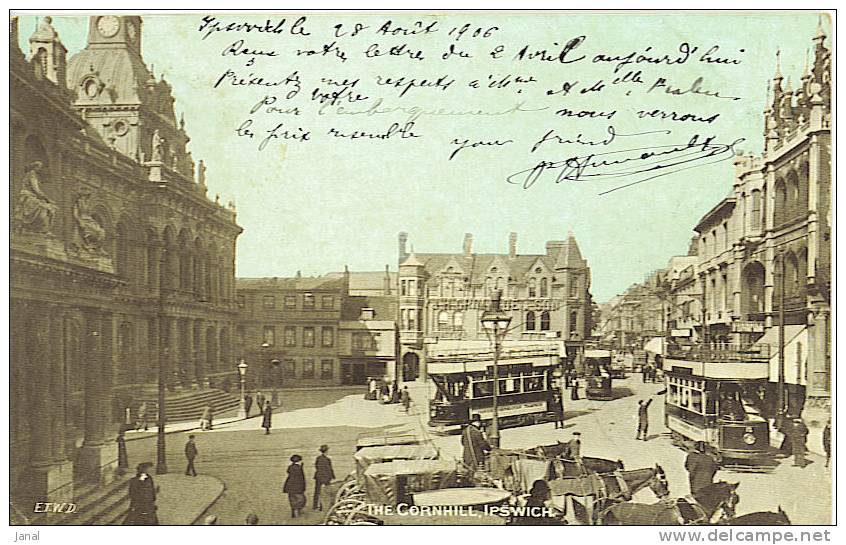 Ipswich le 28 Août 1906
Reçu votre lettre du 2 Avril aujourd'hui
Présentez mes respects à Mme A Melle
votre
Pour l'embarquement nous verrons
les prix ensemble your friend
E.T.W.D
THE CORNHILL, IPSWICH.
Janal
www.delcampe.net